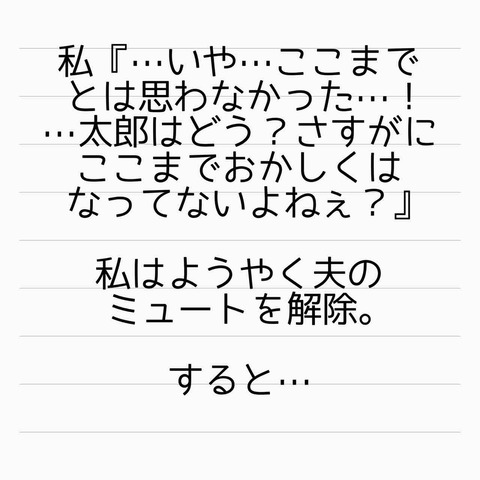 私『…いや…ここまで
とは思わなかった…！
…太郎はどう？さすがに
ここまでおかしくは
なってないよねぇ？』
私はようやく夫の
ミュートを解除。
すると…